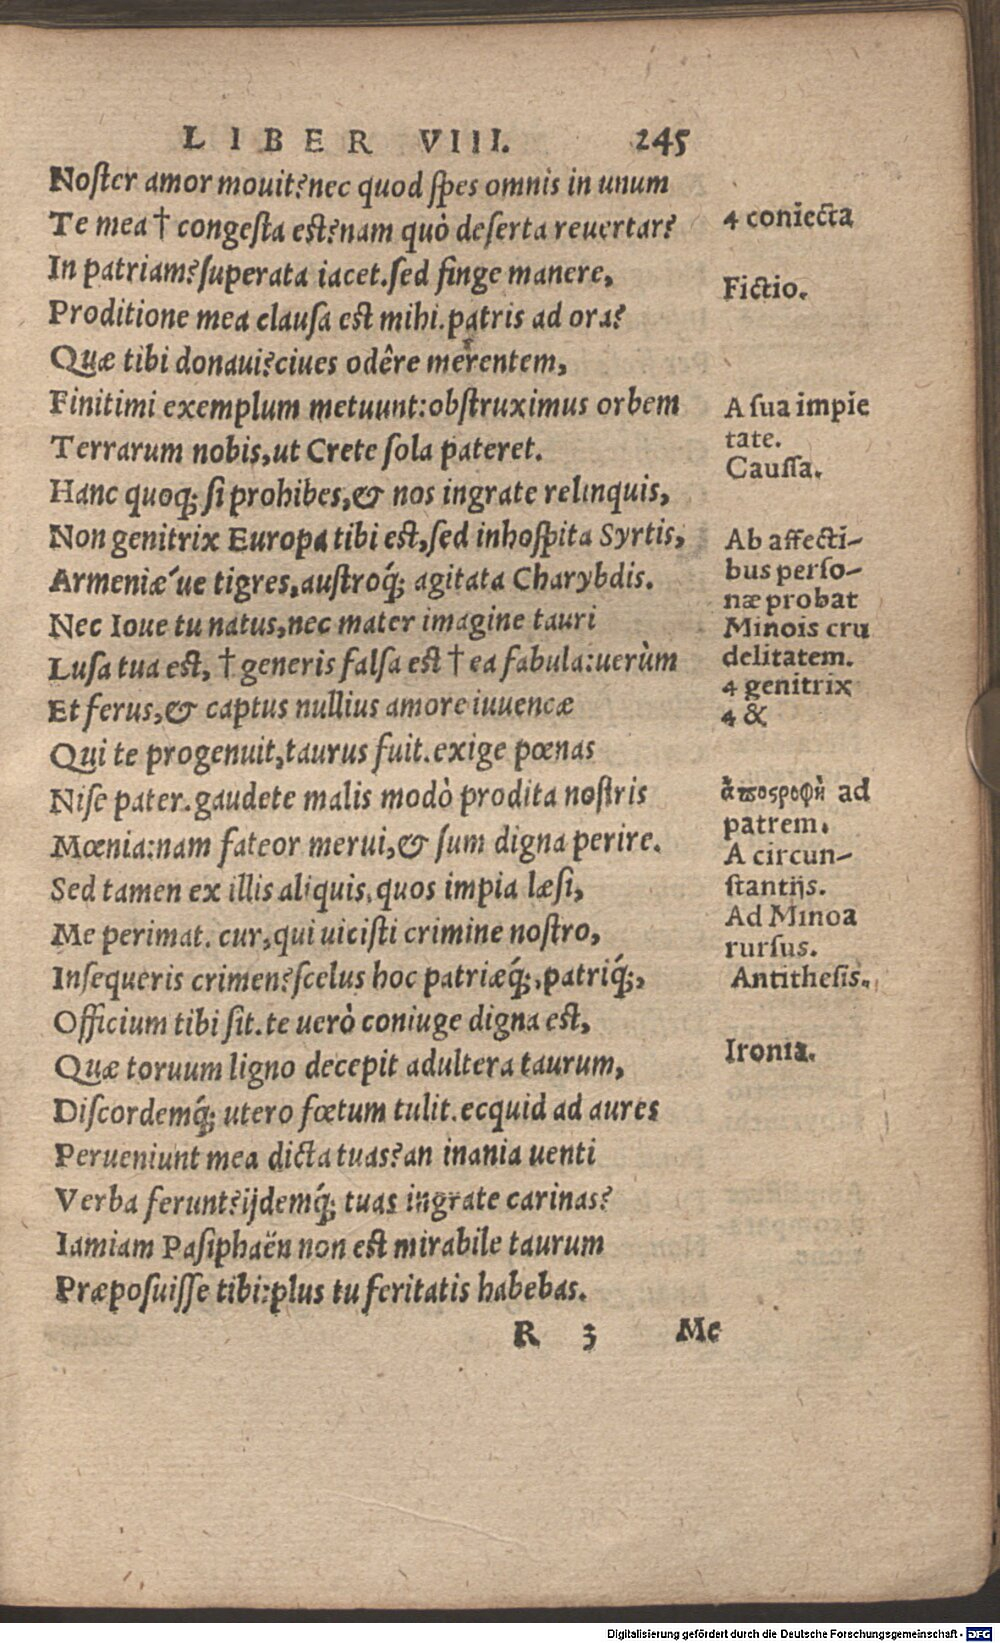 LIBER VIII. 245
Noster amor mouit? nec quod spes omnis in unum
Te mea † congesta est? nam quò deserta reuertar?
4 coniecta
In patriam? superata iacet. sed finge manere,
Fictio.
Proditione mea clausa est mihi. patris ad ora?
Quæ tibi donaui? ciues odêre merentem,
Finitimi exemplum metuunt: obstruximus orbem
A sua impie
Terrarum nobis, ut Crete sola pateret.
tate.
Caussa.
Hanc quoq; si prohibes, & nos ingrate relinquis,
Non genitrix Europa tibi est, sed inhospita Syrtis,
Ab affecti-
Armeniæ´ue tigres, austroq́; agitata Charybdis.
bus perso-
næ probat
Nec Ioue tu natus, nec mater imagine tauri
Minois cru
Lusa tua est, † generis falsa est † ea fabula: uerùm
delitatem.
4 genitrix
Et ferus, & captus nullius amore iuuencæ
4 &
Qui te progenuit, taurus fuit. exige pœnas
Nise pater. gaudete malis modò prodita nostris
ἀποστροφὴ ad
patrem.
Mœnia: nam fateor merui, & sum digna perire.
A circun-
Sed tamen ex illis aliquis, quos impia læsi,
stantijs.
Me perimat. cur, qui uicisti crimine nostro,
Ad Minoa
rursus.
Insequeris crimen? scelus hoc patriæq́;, patriq́;,
Antithesis.
Officium tibi sit. te uerò coniuge digna est,
Quæ toruum ligno decepit adultera taurum,
Ironia.
Discordemq́; utero fœtum tulit. ecquid ad aures
Perueniunt mea dicta tuas? an inania uenti
Verba ferunt? ijdemq́; tuas ingrate carinas?
Iamiam Pasiphaën non est mirabile taurum
Præposuisse tibi: plus tu feritatis habebas.
R 3 Me
Digitalisierung gefördert durch die Deutsche Forschungsgemeinschaft - DFG